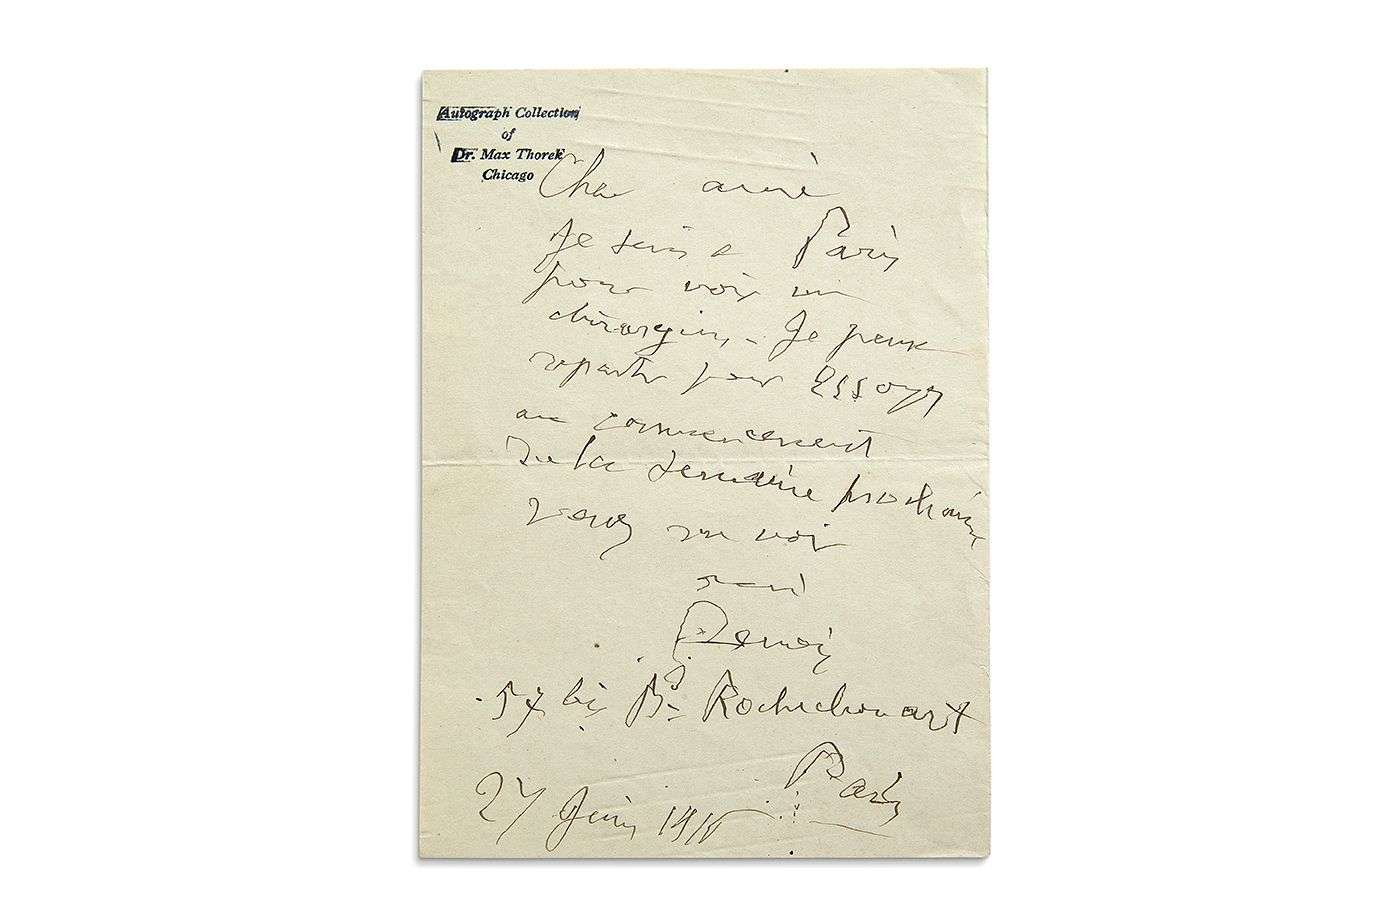 Autograph Collection
of
Dr. Max Thorek
Chicago
Cher ami
Je suis a Paris
pour voir un
chirurgien. Je peux
repartir pour Essoyes
au commencement
de la semaine prochaine
venez me voir
ami
Renoir
57 bis Bd Rochechouart
Paris
27 Juin